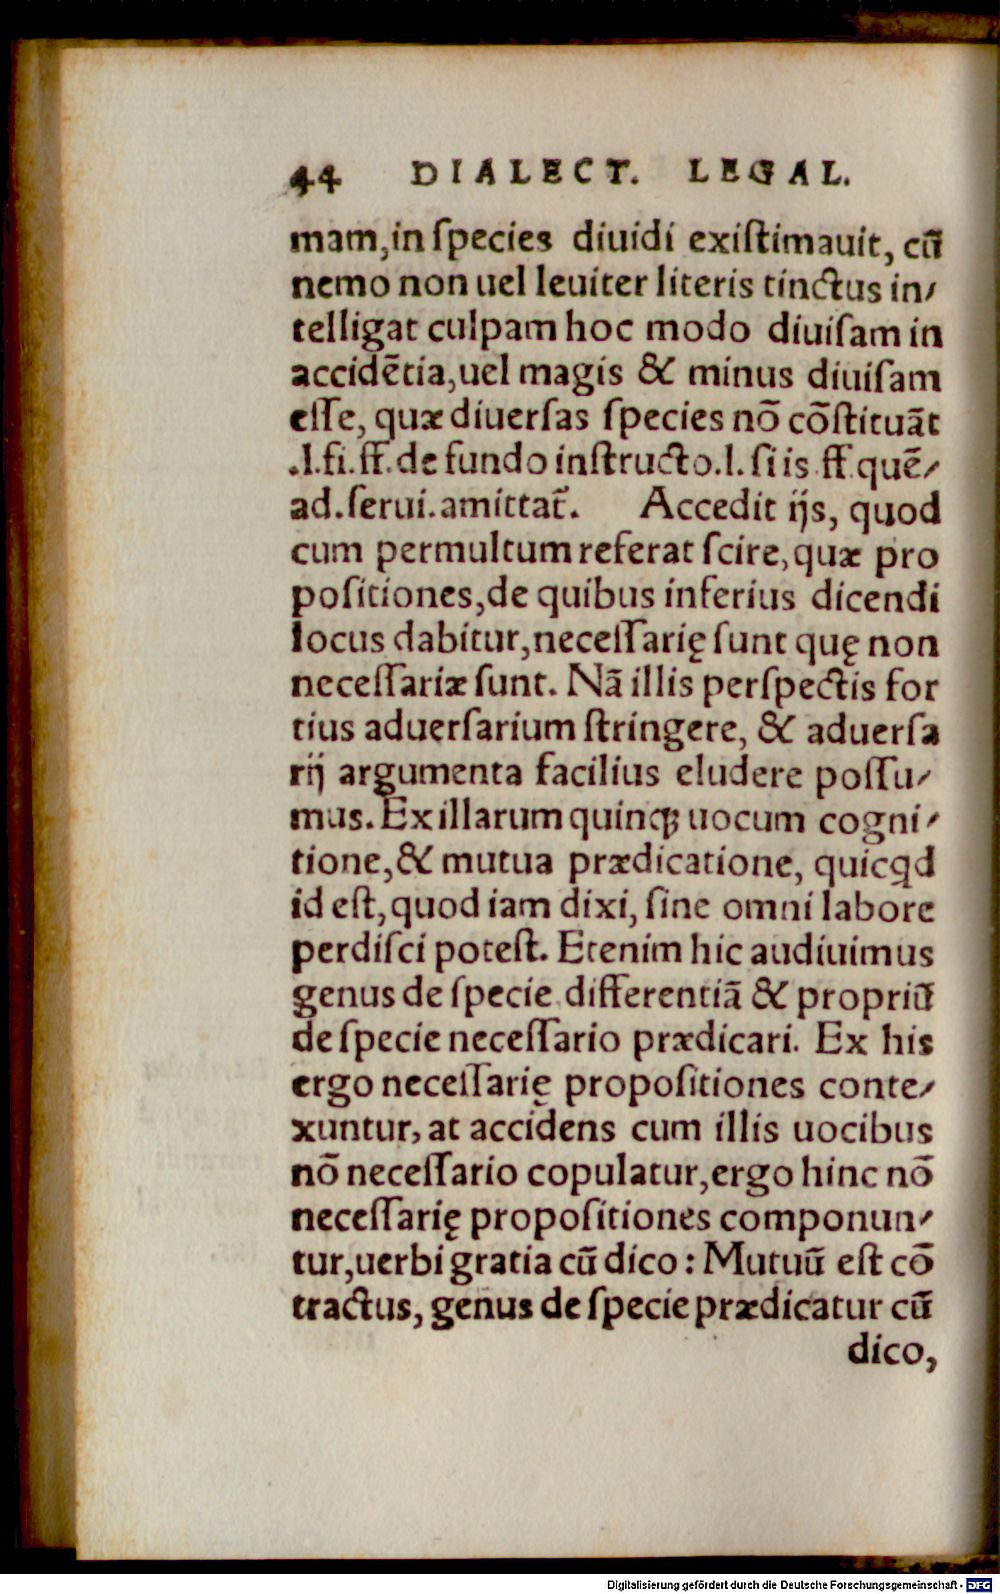 44 DIALECT. LEGAL.
mam, in ſpecies diuidi exiſtimauit, cū
nemo non uel leuiter literis tinctus in⸗
telligat culpam hoc modo diuiſam in
accidētia, uel magis & minus diuiſam
eſſe, quæ diuerſas ſpecies nō cōſtituāt
.l.fi.ff.de fundo inſtructo.l.ſi is ff.quē⸗
ad.ſerui.amittat᷑. Accedit ijs, quod
cum permultum referat ſcire, quæ pro
poſitiones, de quibus inferius dicendi
locus dabitur, neceſſarię ſunt quę non
neceſſariæ ſunt. Nā illis perſpectis for
tius aduerſarium ſtringere, & aduerſa
rij argumenta facilius eludere poſſu⸗
mus. Ex illarum quinqꝫ uocum cogni⸗
tione, & mutua prædicatione, quicꝗd
id eſt, quod iam dixi, ſine omni labore
perdiſci poteſt. Etenim hic audiuimus
genus de ſpecie differentiā & propriū
de ſpecie neceſſario prædicari. Ex his
ergo neceſſarię propoſitiones conte⸗
xuntur, at accidens cum illis uocibus
nō neceſſario copulatur, ergo hinc nō
neceſſarię propoſitiones componun⸗
tur, uerbi gratia cū dico : Mutuū eſt cō
tractus, genus de ſpecie prædicatur cū
dico,
Digitalisierung gefördert durch die Deutsche Forschungsgemeinschaft - DFG